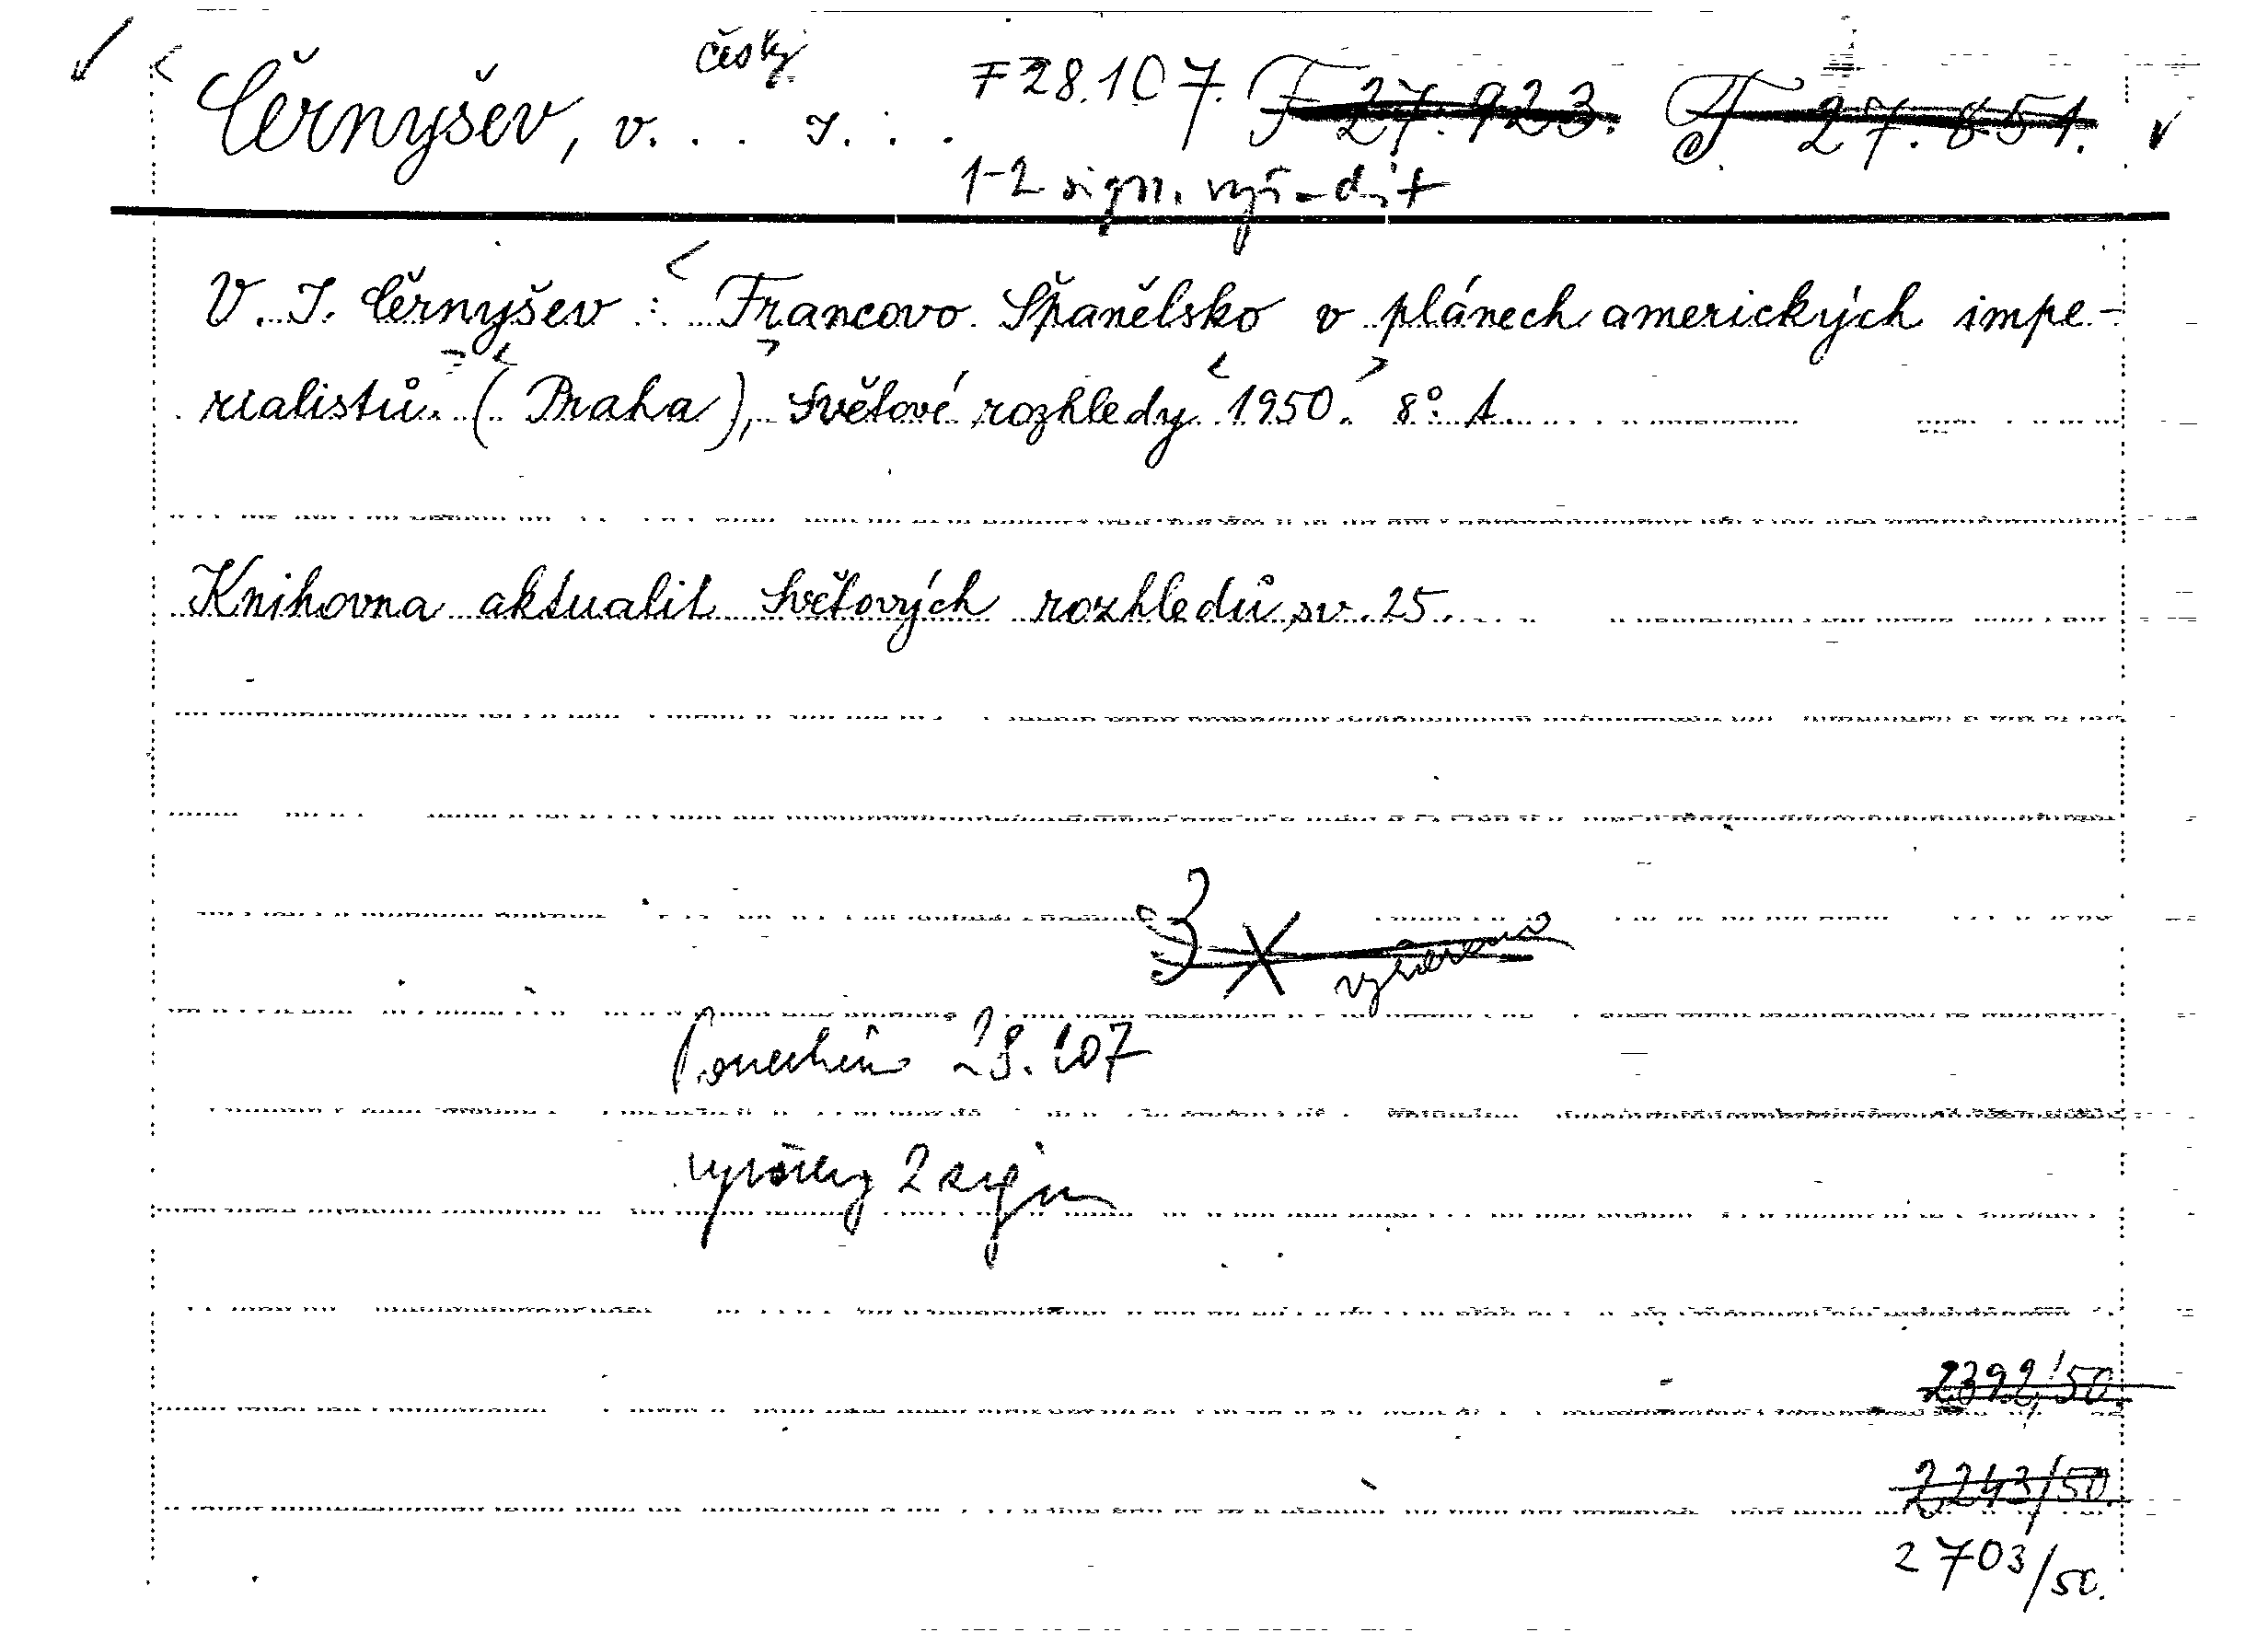 česky
Černyšev, V. . . J. . . F 28.107. F 27.923. F 27.851.
1-2 sign. vyřadit
V. J. Černyšev : Francovo Španělsko v plánech amerických impe-
rialistů. (Praha), Světové rozhledy 1950. 8°. 1.
Knihovna aktualit Světových rozhledů, sv. 25.
3 X vyřazeno
Ponechán 28.107
vyřazeny 2 sign
2392/50.
2243/50.
2703/50.